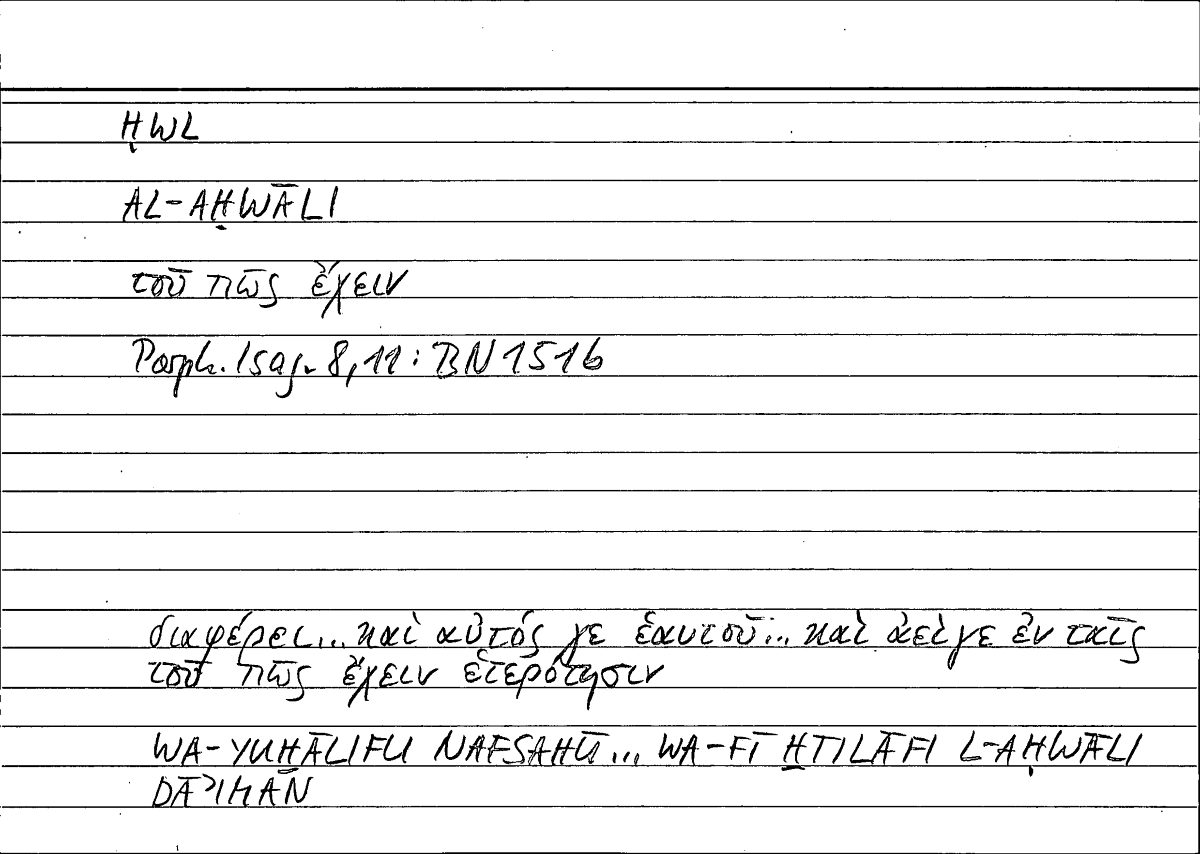 ḤWL
AL-AḤWĀLI
τοῦ πῶς ἔχειν
Porph. Isag. 8,11 : BN 1516
διαφέρει... καὶ αὐτός γε ἑαυτοῦ... καὶ ἀεί γε ἐν ταῖς
τοῦ πῶς ἔχειν ἑτερότησιν
WA-YUḪĀLIFU NAFSAHŪ... WA-FĪ ḪTILĀFI L-AḤWĀLI
DĀʾIMAÑ